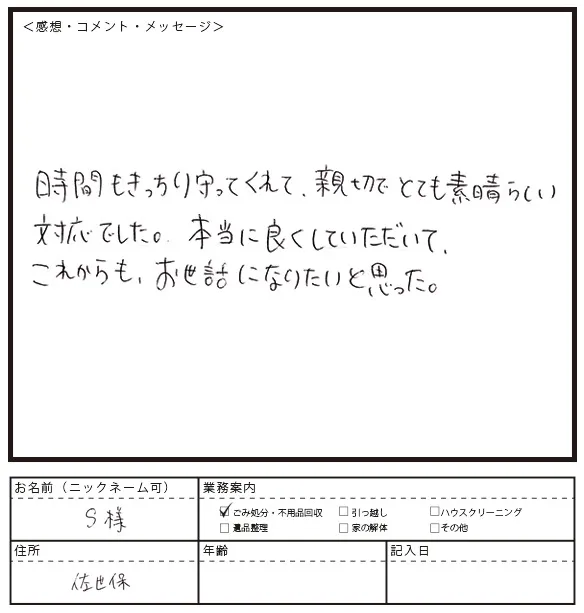 ＜感想・コメント・メッセージ＞
時間もきっちり守ってくれて、親切でとても素晴らしい
対応でした。本当に良くしていただいて、
これからも、お世話になりたいと思った。
お名前（ニックネーム可）
S様
業務案内
☑ごみ処分・不用品回収 □引っ越し □ハウスクリーニング
□遺品整理 □家の解体 □その他
住所
佐世保
年齢
記入日